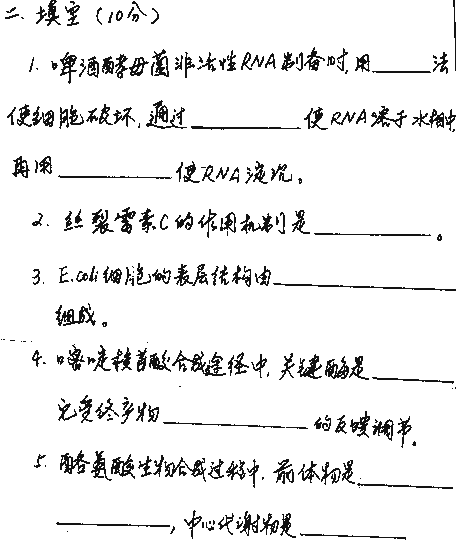 二、填空（10分）
1. 啤酒酵母菌非活性RNA制备时, 用____法
使细胞破坏, 通过________使RNA溶于水相中
再用________使RNA沉淀。
2. 丝裂霉素C的作用机制是________。
3. E.coli细胞的表层结构由____________
组成。
4. 嘧啶核苷酸合成途径中, 关键酶是______
它受终产物__________的反馈调节。
5. 酪氨酸生物合成过程中, 前体物是______
________, 中心代谢物是________